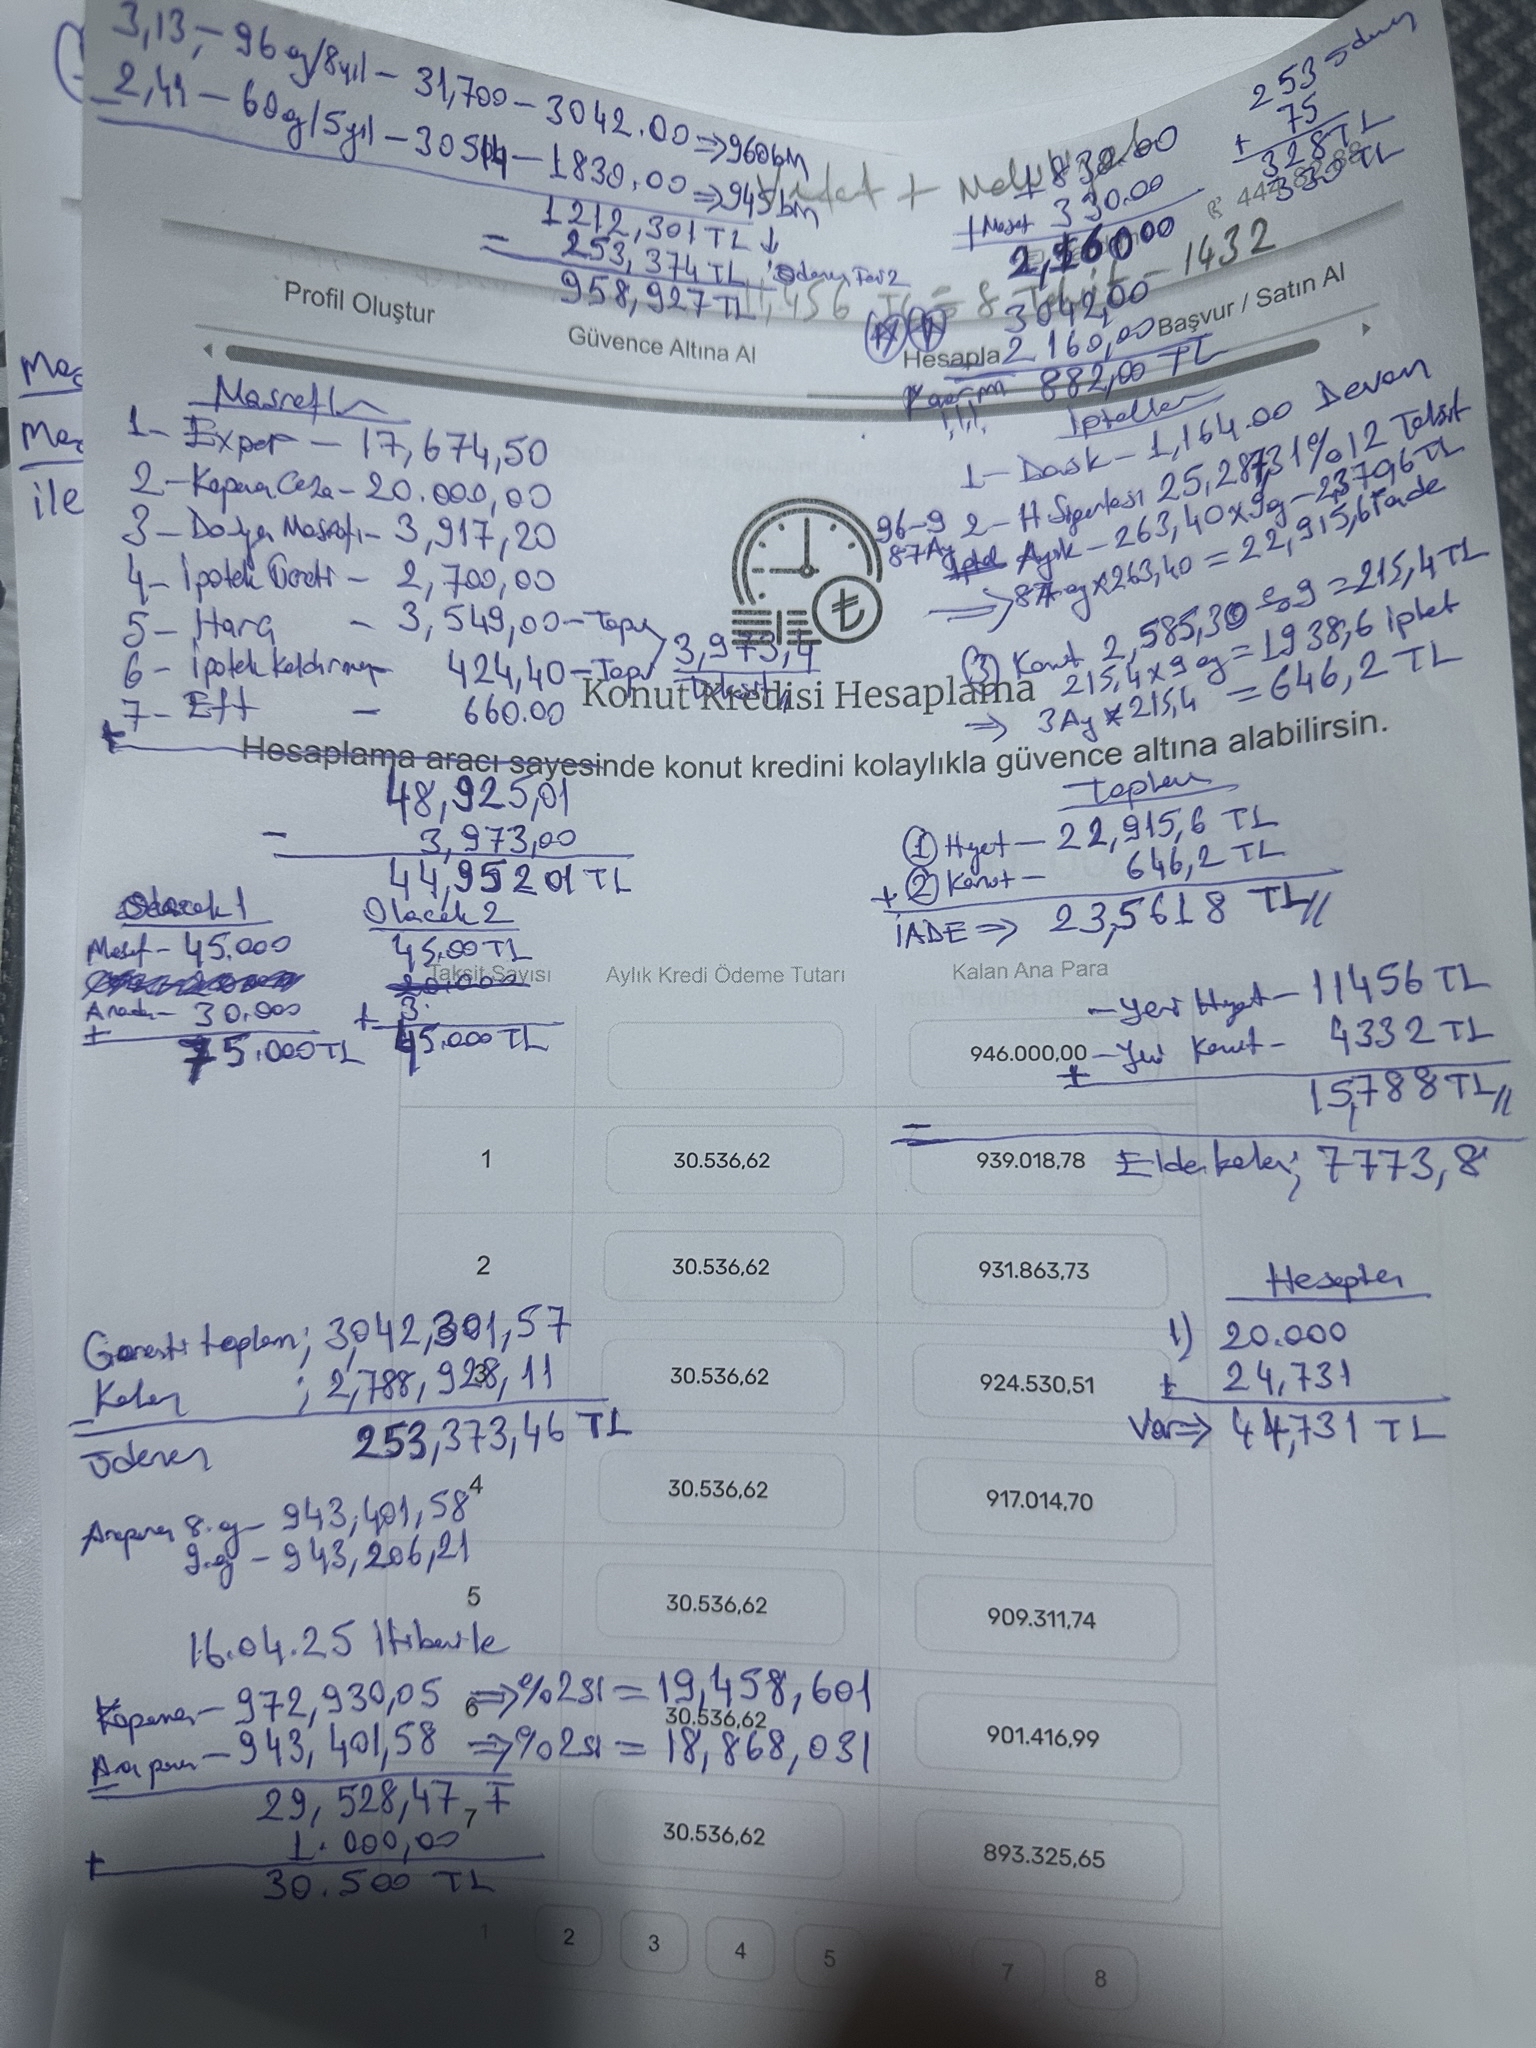 3,13,-96 ay/8yıl - 31,700 - 3042.00 => 960bin
2,49 - 60ay/5yıl - 30514 - 1830.00 => 945bin
1212,301 TL ↓
= 253,374 TL ödenen
958,927 TL
+ 1830.00
Masraf 330.00
2,160.00
253 ödenen
+ 75
328 TL
330 TL
444 82 88
11,456 TL = 8 Taksit - 1432
3042,00
2160,00
882,00 TL
!!!
Profil Oluştur
Güvence Altına Al
Hesapla
Başvur / Satın Al
Mas
Mas
ile
Masraflar
1- Exper - 17,674,50
2- Kapama Ceza - 20.000,00
3- Dosya Masrafı - 3,917,20
4- İpotek Ücreti - 2,700,00
5- Harç - 3,549,00 - Tapu
6- İpotek Kaldırma - 424,40 - Tapu
3,973,4
7- Eft - 660.00
+
48,925,01
- 3,973,00
44,952 01 TL
İptaller
1- Dask - 1,164.00 Devam
2- H. Sigortası 25,287,31 % 12 Taksit
96-9
87Ay
Aylık - 263,40x9ay - 2370,6 TL
=> 87ay x 263,40 = 22,915,6 iade
(3) Konut 2,585,30 = 215,4 TL
215,4 x 9 ay = 1938,6 iptal
=> 3 Ay x 215,4 = 646,2 TL
Konut Kredisi Hesaplama
Hesaplama aracı sayesinde konut kredini kolaylıkla güvence altına alabilirsin.
Toplam
① Hayat - 22,915,6 TL
+ ② Konut - 646,2 TL
İADE => 23,561 8 TL //
Olacak 1
Masraf - 45.000
Arada - 30.000
+
75.000 TL
Olacak 2
45.00 TL
20.000
+ 3.
45.000 TL
Taksit Sayısı
Aylık Kredi Ödeme Tutarı
Kalan Ana Para
- Yeni Hayat - 11456 TL
946.000,00
- Yeni Konut - 4332 TL
+
15,788 TL //
=
1
30.536,62
939.018,78
Elde kalan; 7773,8
2
30.536,62
931.863,73
Hesapta
1) 20.000
+ 24,731
Var => 44,731 TL
Garanti toplam; 3,042,301,57
Kalan ; 2,788,928,11
Ödenen 253,373,46 TL
3
30.536,62
924.530,51
4
30.536,62
917.014,70
Anapara 8.ay - 943,401,58
9.ay - 943,206,21
5
30.536,62
909.311,74
16.04.25 İtibariyle
Kapama - 972,930,05 => %2si = 19,458,601
6
30.536,62
901.416,99
Ana para - 943,401,58 => %2si = 18,868,031
29,528,47
+ 1.000,00
30.500 TL
7
30.536,62
893.325,65
1
2
3
4
5
7
8